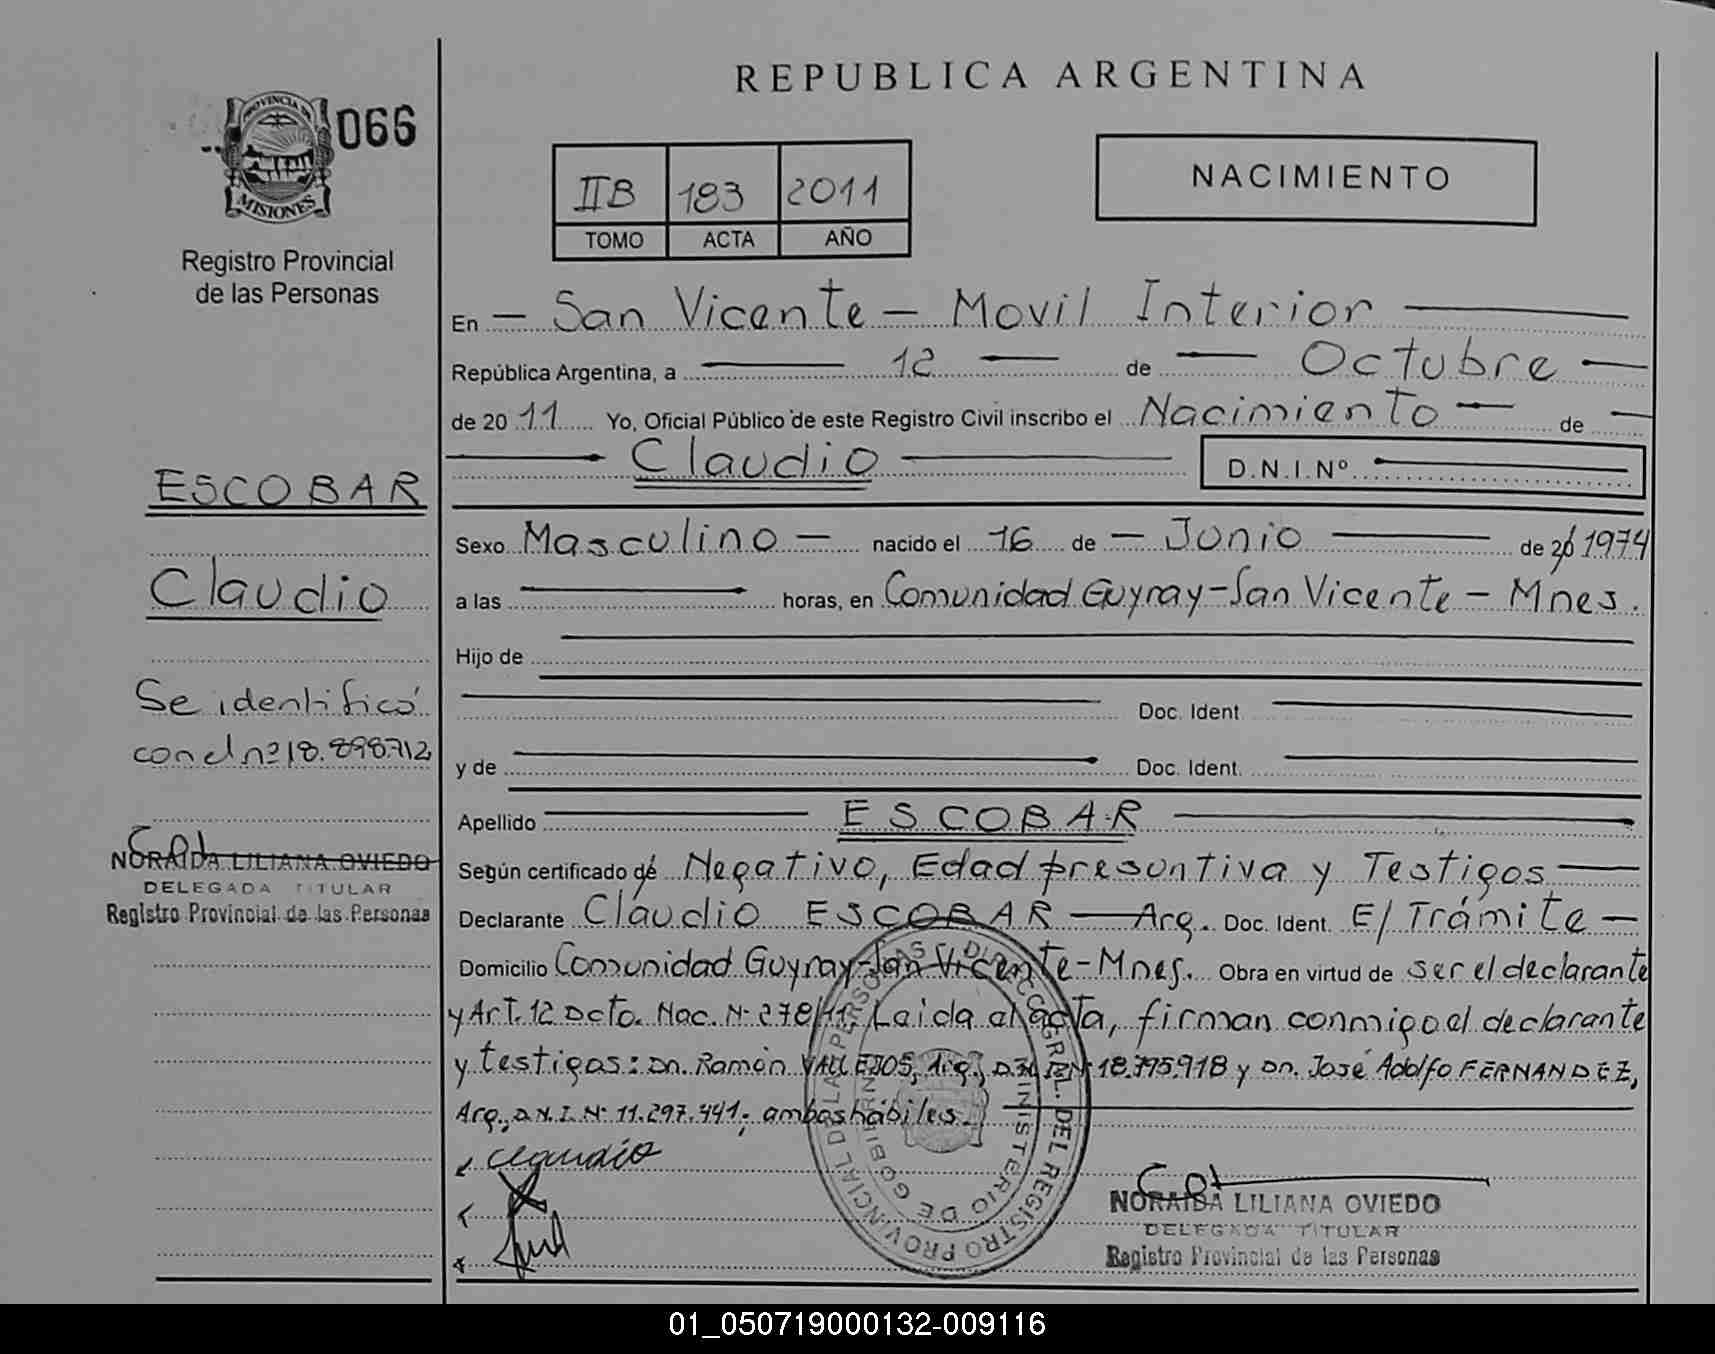 REPUBLICA ARGENTINA
PROVINCIA DE
MISIONES
066
Registro Provincial
de las Personas
IIB 183 2011
TOMO ACTA AÑO
NACIMIENTO
En - San Vicente - Movil Interior
República Argentina, a 12 de Octubre
de 2011 Yo, Oficial Público de este Registro Civil inscribo el Nacimiento de
Claudio D.N.I.Nº
Sexo Masculino nacido el 16 de Junio de 20 1974
a las horas, en Comunidad Guyray - San Vicente - Mnes.
Hijo de
Doc. Ident.
y de Doc. Ident.
Apellido ESCOBAR
Según certificado de Negativo, Edad presuntiva y Testigos
Declarante Claudio ESCOBAR - Arg. Doc. Ident. E/Trámite -
Domicilio Comunidad Guyray - San Vicente - Mnes. Obra en virtud de ser el declarante
y Art. 12 Dcto. Nac. Nº 278/11. Leida el acta, firman conmigo el declarante
y testigos: Dn. Ramón VALLEJOS, Arg., D.N.I. Nº 18.795.918 y Dn. José Adolfo FERNANDEZ,
Arg., D.N.I. Nº 11.297.441; ambos hábiles.
Claudio
NORAIDA LILIANA OVIEDO
DELEGADA TITULAR
Registro Provincial de las Personas
DIRECC. GRAL. DEL REGISTRO PROVINCIAL DE LAS PERSONAS
MINISTERIO DE GOBIERNO
ESCOBAR
Claudio
Se identificó
con el nº 18.898.712
NORAIDA LILIANA OVIEDO
DELEGADA TITULAR
Registro Provincial de las Personas
01_050719000132-009116